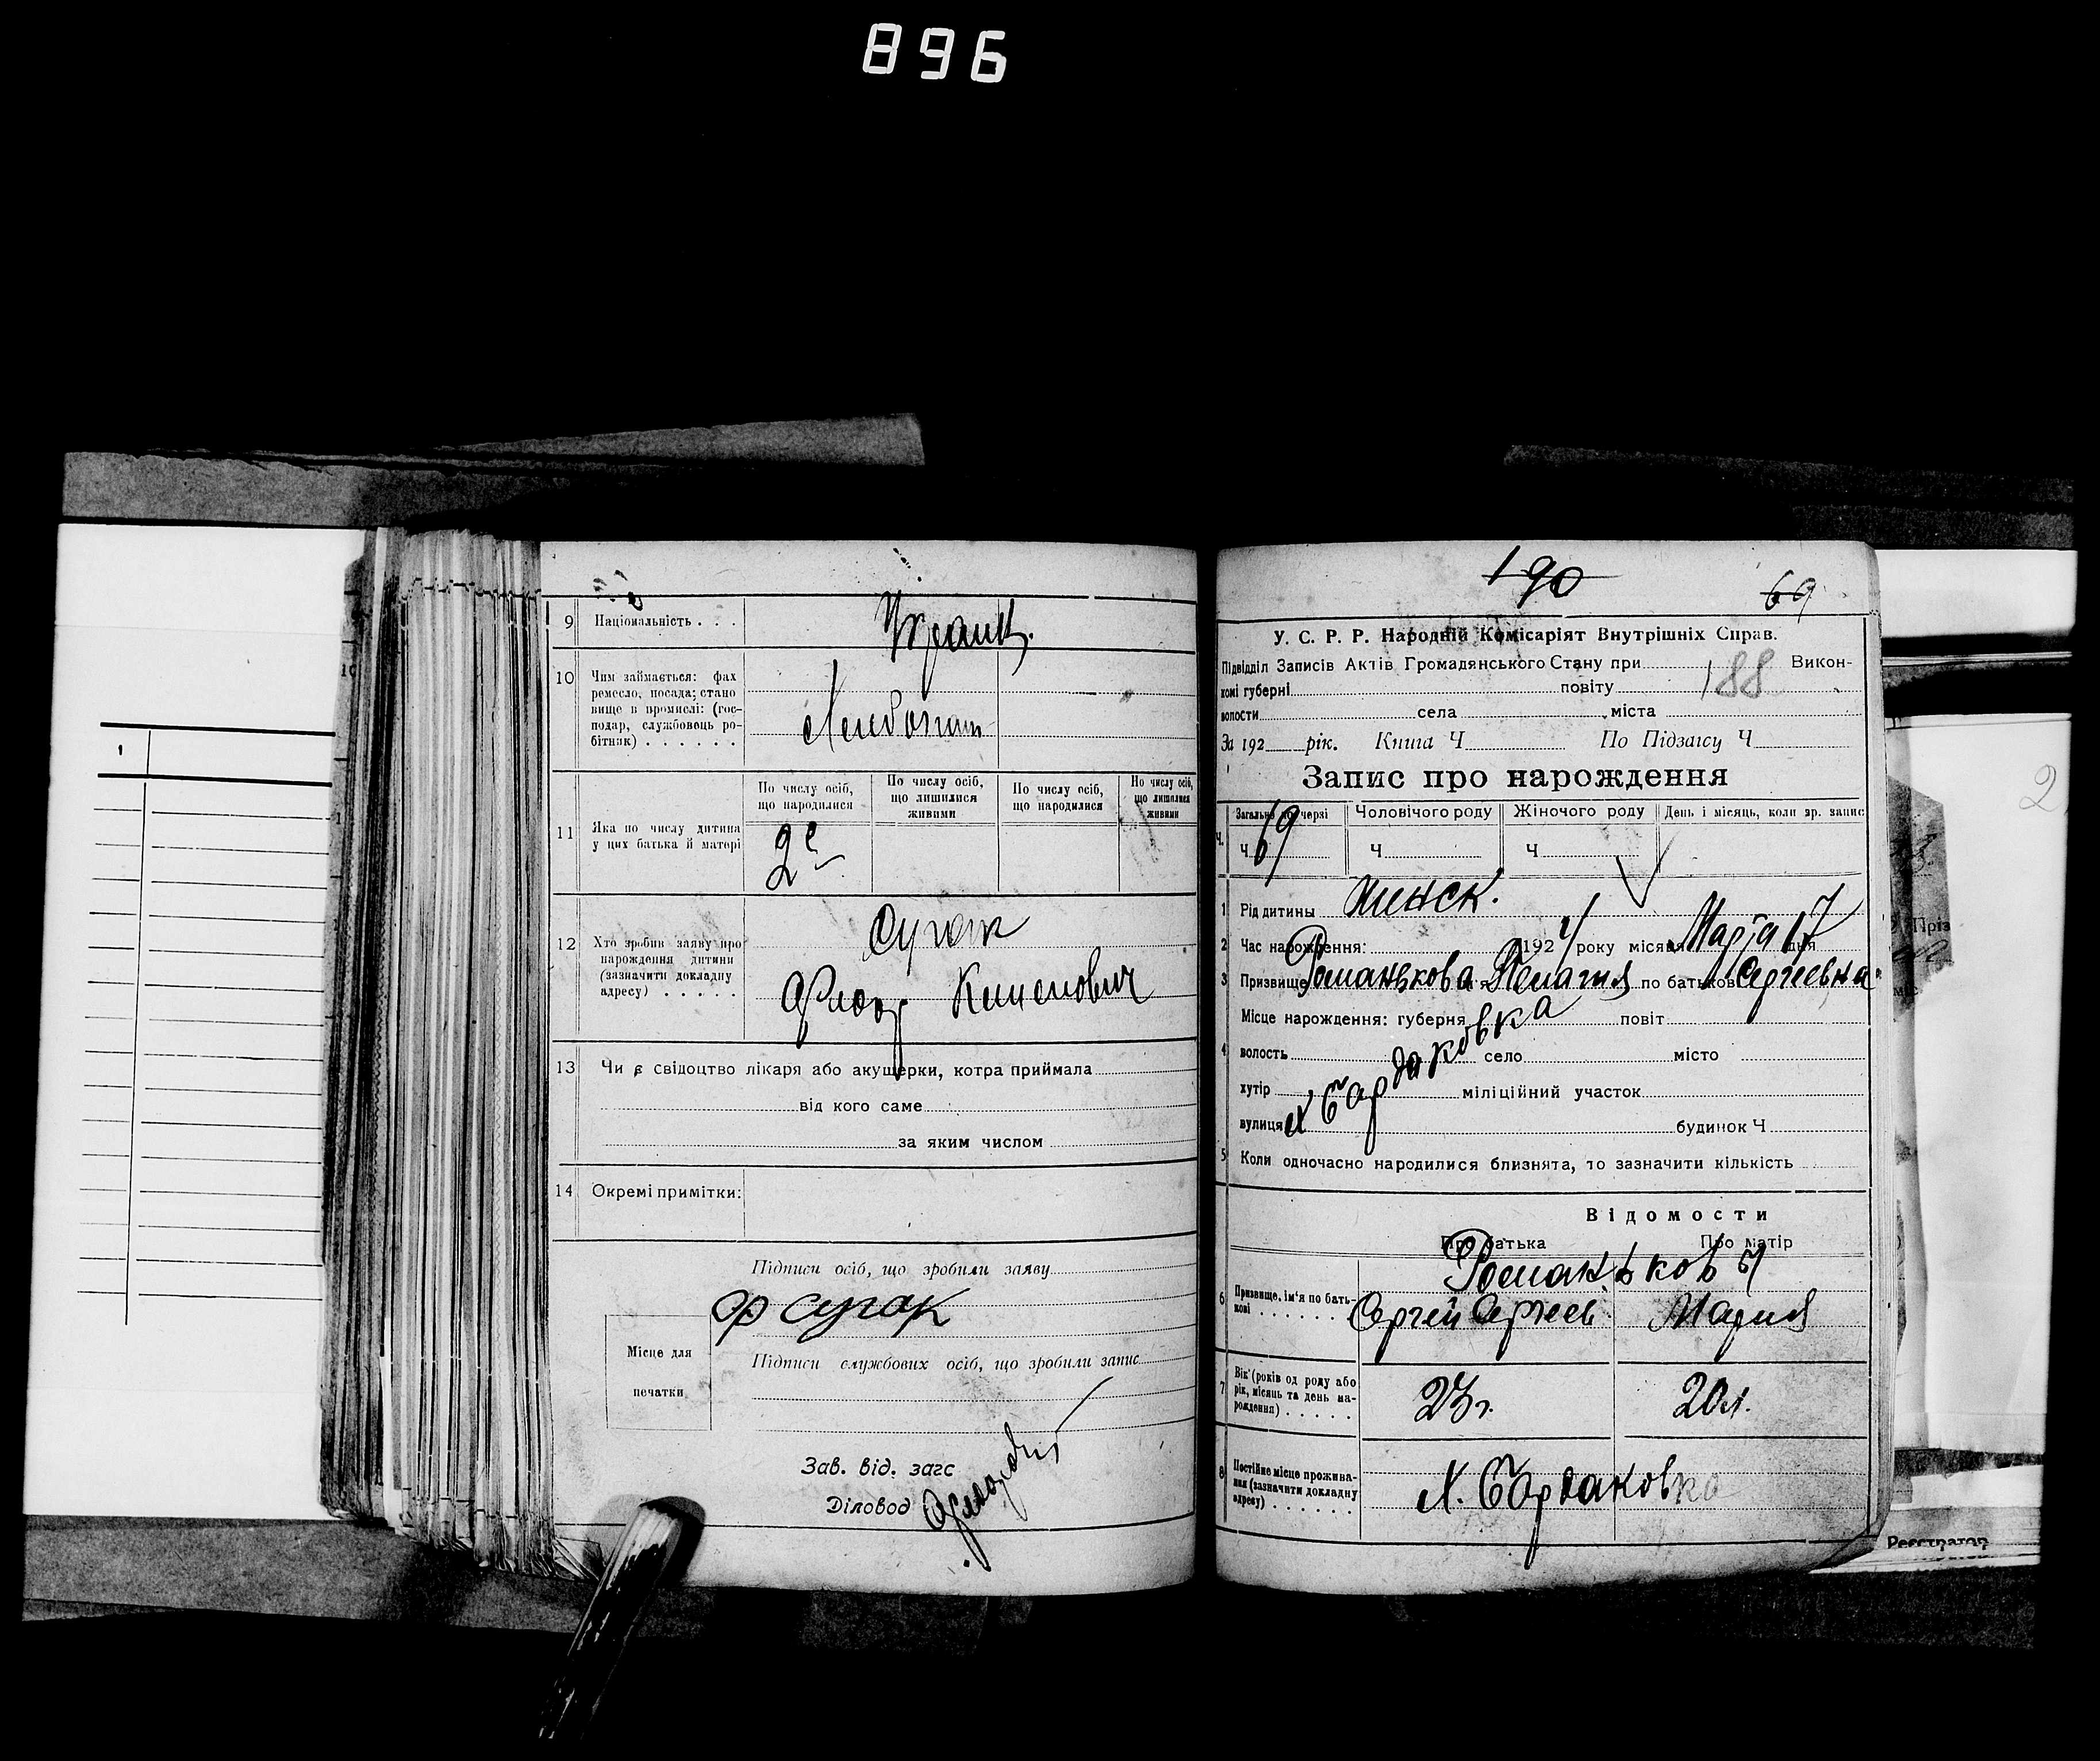 896
9 Національність . . . Украин.
10 Чим займається: фах
ремесло, посада; стано
вище в промислі: (гос-
подар, службовець ро-
бітник) . . . . . .
Хлебопаш
11 Яка по числу дитина
у цих батька й матері
По числу осіб,
що народилися
По числу осіб,
що лишилися
живими
По числу осіб,
що народилися
По числу осіб,
що лишилися
живими
2е
12 Хто зробив заяву про
нарождення дитини
(зазначити докладну
адресу) . . . . .
Сугак
Федор
13 Чи є свідоцтво лікаря або акушерки, котра приймала
від кого саме
за яким числом
14 Окремі примітки:
Підписи осіб, що зробили заяву
Ф Сугак
Місце для
печатки
Підписи службових осіб, що зробили запис
Зав. від. загс
Діловод
190
69
У. С. Р. Р. Народній Комісаріят Внутрішніх Справ.
Підвідділ Записів Актів Громадянського Стану при Викон-
комі губерні повіту 188
волости села міста
За 192 рік. Книга Ч По Підзагсу Ч
Запис про нарождення
Загальна по черзі Чоловічого роду Жіночого роду День і місяць, коли зр. запис
Ч. Ч 69 Ч Ч
1 Рід дитины Женск.
2 Час нарождення: 1924 року місяця Марта 17 дня
3 Призвище Романькова ім'я Пелагия по батькові Сергеевна
4 Місце нарождення: губерня повіт
волость село місто
хутір міліційний участок
вулиця будинок Ч
х Бардаковка
5 Коли одночасно народилися близнята, то зазначити кількість
Відомости
Про батька Про матір
Романьковы
6 Призвище, ім'я по бать-
кові . . . . . .
Сергей Сергеев Мария
7 Вік (років од роду або
рік, місяць та день на-
рождення) . . . . .
23 г. 20 л.
8 Постійне місце прожива-
ння (зазначити докладну
адресу) . . . . . .
Х. Бардаковка
Пріз
2
Реєстратор
1